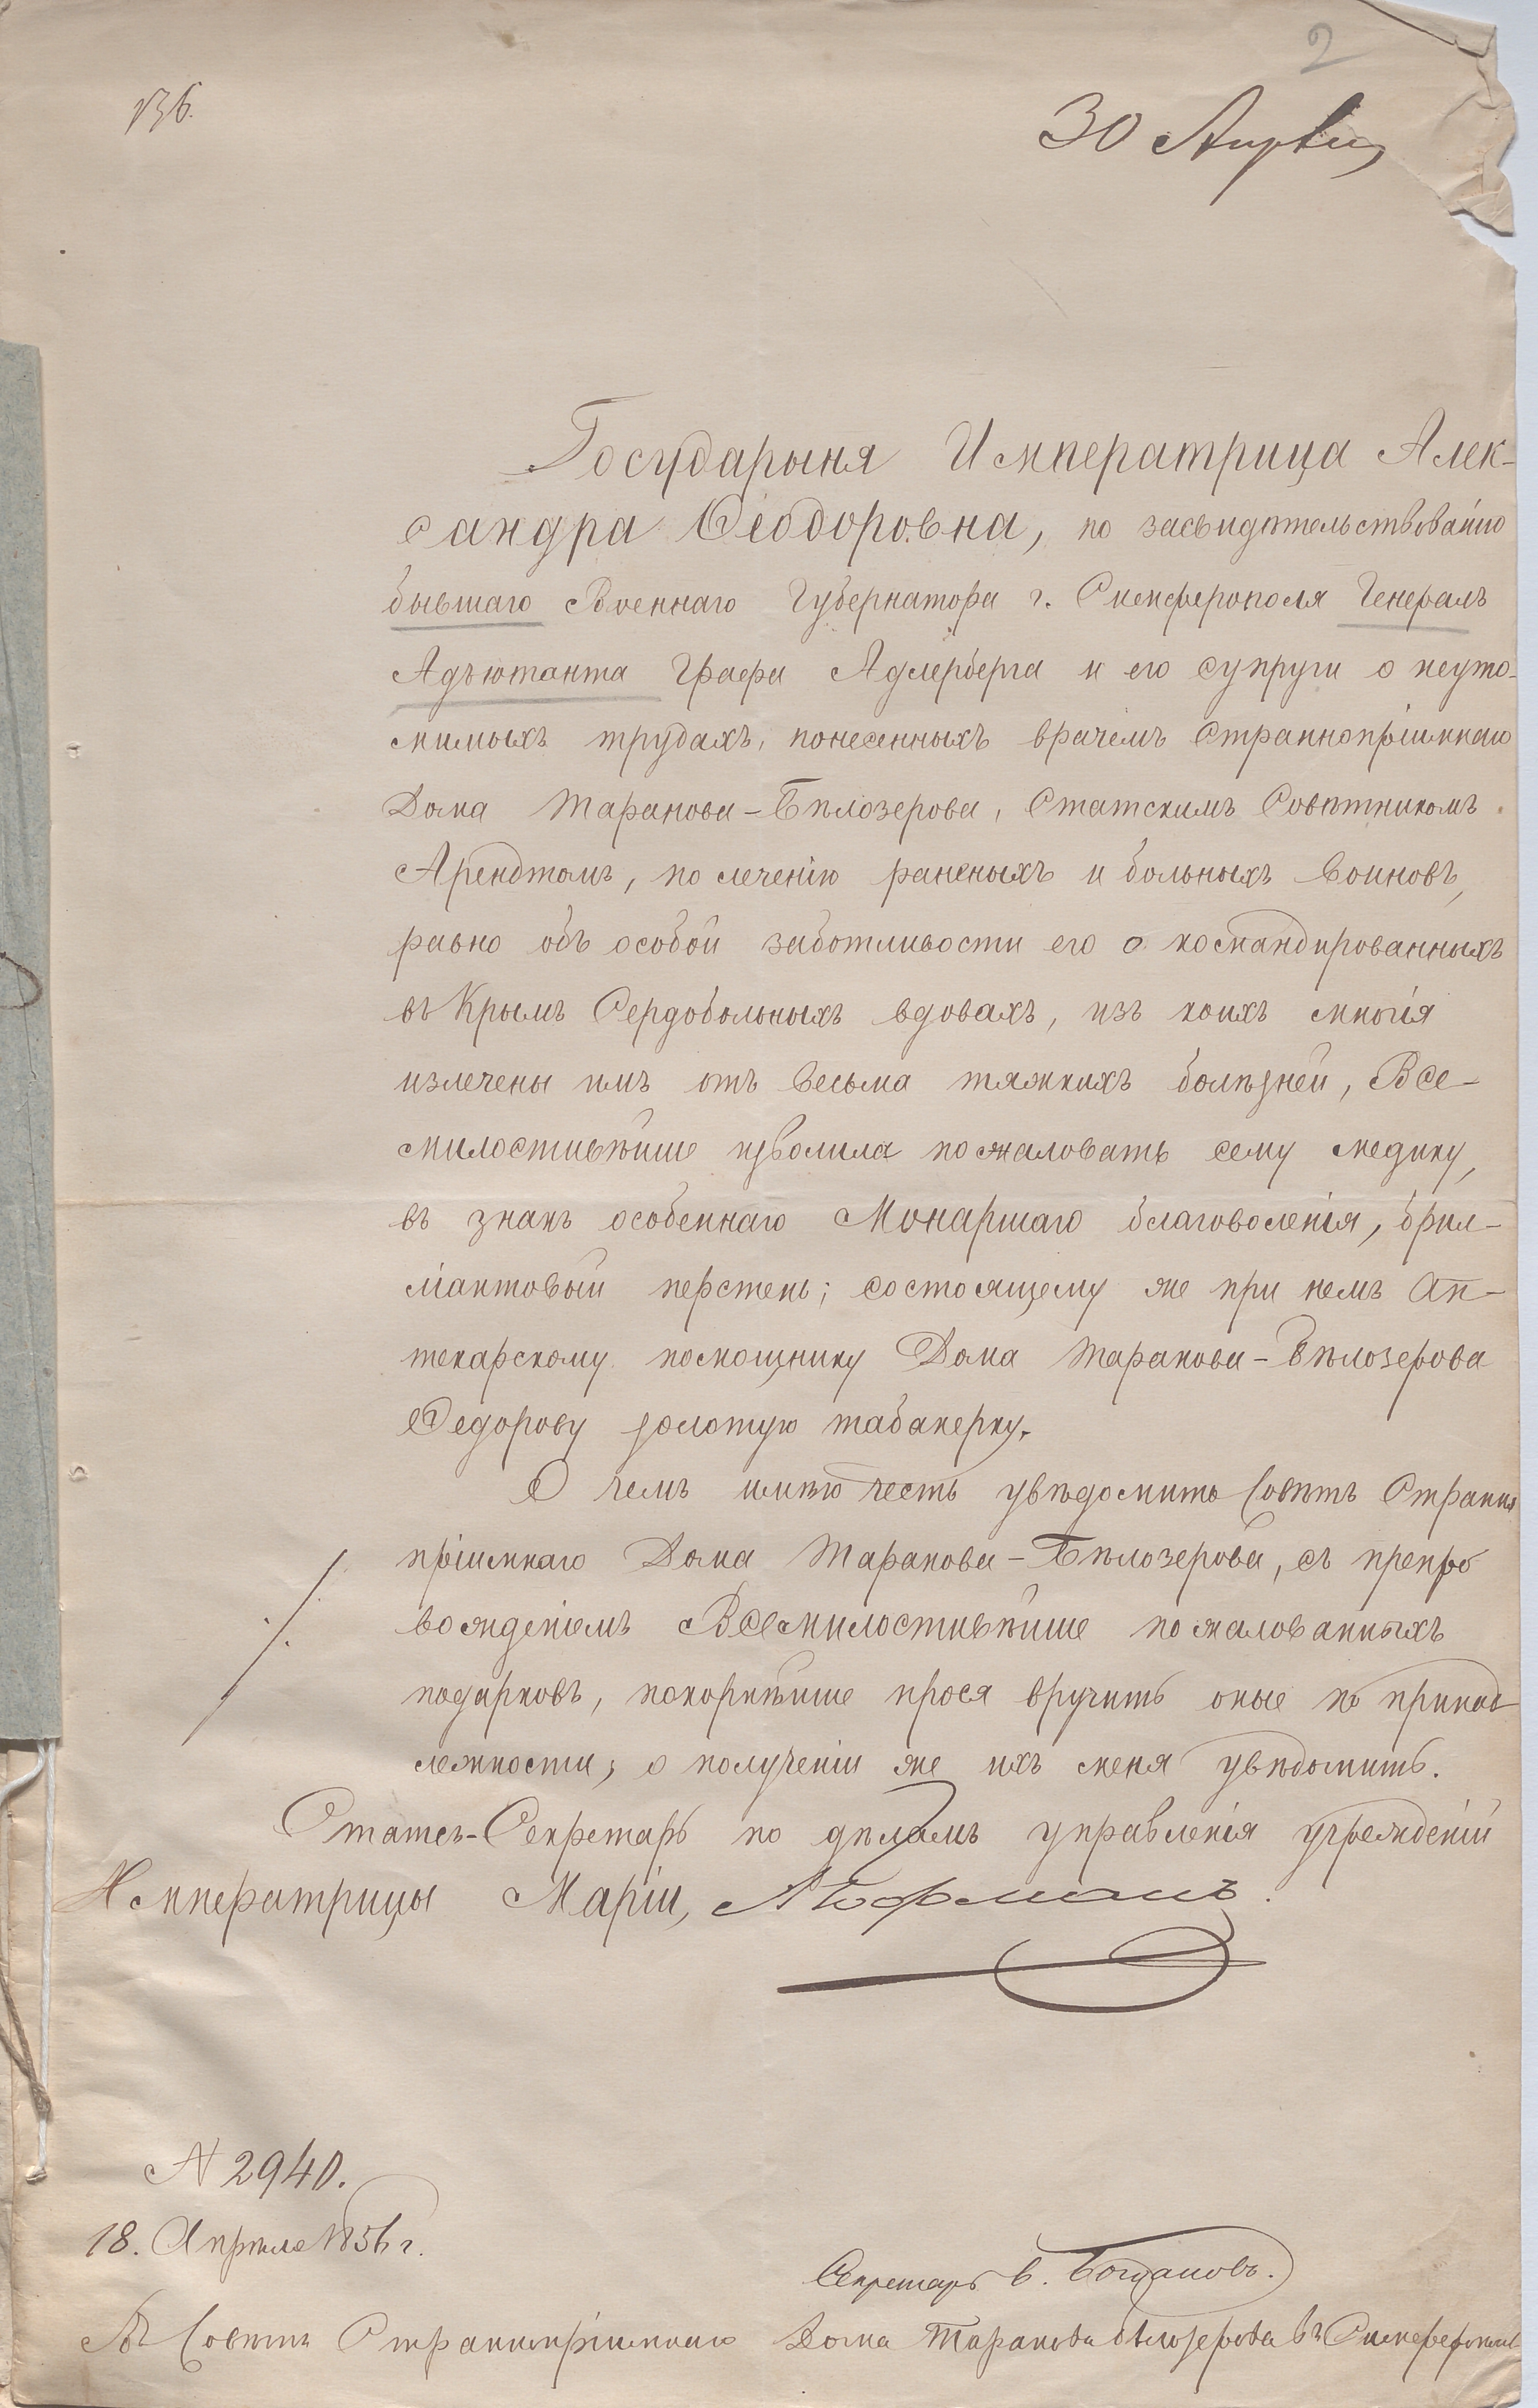 2
136.
30 Апрѣля
Государыня Императрица Алек-
сандра Ѳеодоровна, по засвидѣтельствованію
бывшаго Военнаго Губернатора г. Симферополя Генералъ
Адъютанта Графа Адлерберга и его супруги о неуто-
мимыхъ трудахъ, понесенныхъ врачемъ Страннопріимнаго
Дома Таранова-Бѣлозерова, Статскимъ Совѣтникомъ
Арендтомъ, по леченію раненыхъ и больныхъ воиновъ,
равно объ особой заботливости его о командированныхъ
въ Крымъ Сердобольныхъ вдовахъ, изъ коихъ многія
излечены имъ отъ весьма тяжкихъ болѣзней, Все-
милостивѣйше изволила пожаловать сему медику,
въ знакъ особеннаго Монаршаго благоволенія, брил-
ліантовый перстень; состоящему же при немъ Ап-
текарскому помощнику Дома Таранова-Бѣлозерова
Ѳедорову золотую табакерку.
О чемъ имѣю честь увѣдомить Совѣтъ Странно
пріимнаго Дома Таранова-Бѣлозерова, съ препро
вожденіемъ Всемилостивѣйше пожалованныхъ
подарковъ, покорнѣйше прося вручить оные по принад
лежности; о полученіи же ихъ меня увѣдомить.
Статсъ-Секретарь по дѣламъ управленія учрежденій
Императрицы Маріи, А Гофманъ.
N 2940.
18. Апрѣля 1856 г.
Секретарь В. Богдановъ.
Въ Совѣтъ Страннопріимнаго Дома Таранова Бѣлозерова въ Симферополѣ